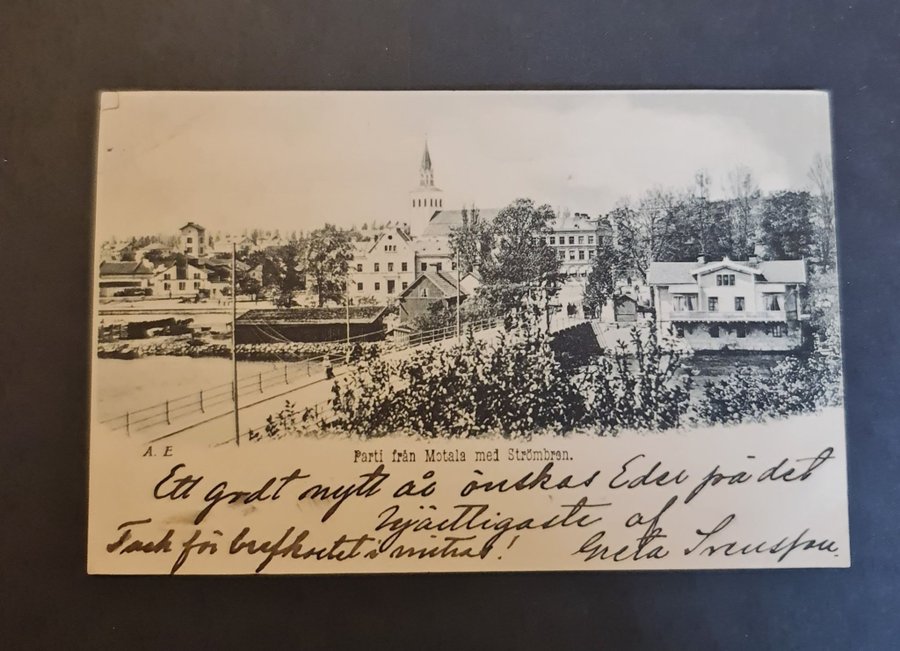 A. E
Parti från Motala med Strömbron.
Ett godt nytt år önskas Eder på det
hjärtligaste af
Tack för brefkortet i mitras! Greta Svensson.